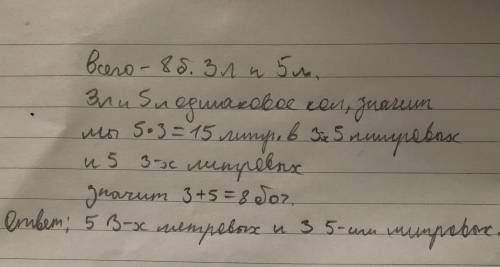 Всего - 8 б. 3л и 5л.
3л и 5л одинаковое кол, значит
мы 5•3=15 литр. в 3х 5 литровых
и 5 3-х литровых
значит 3+5=8 боч.
Ответ; 5 3-х литровых и 3 5-ти литровых.